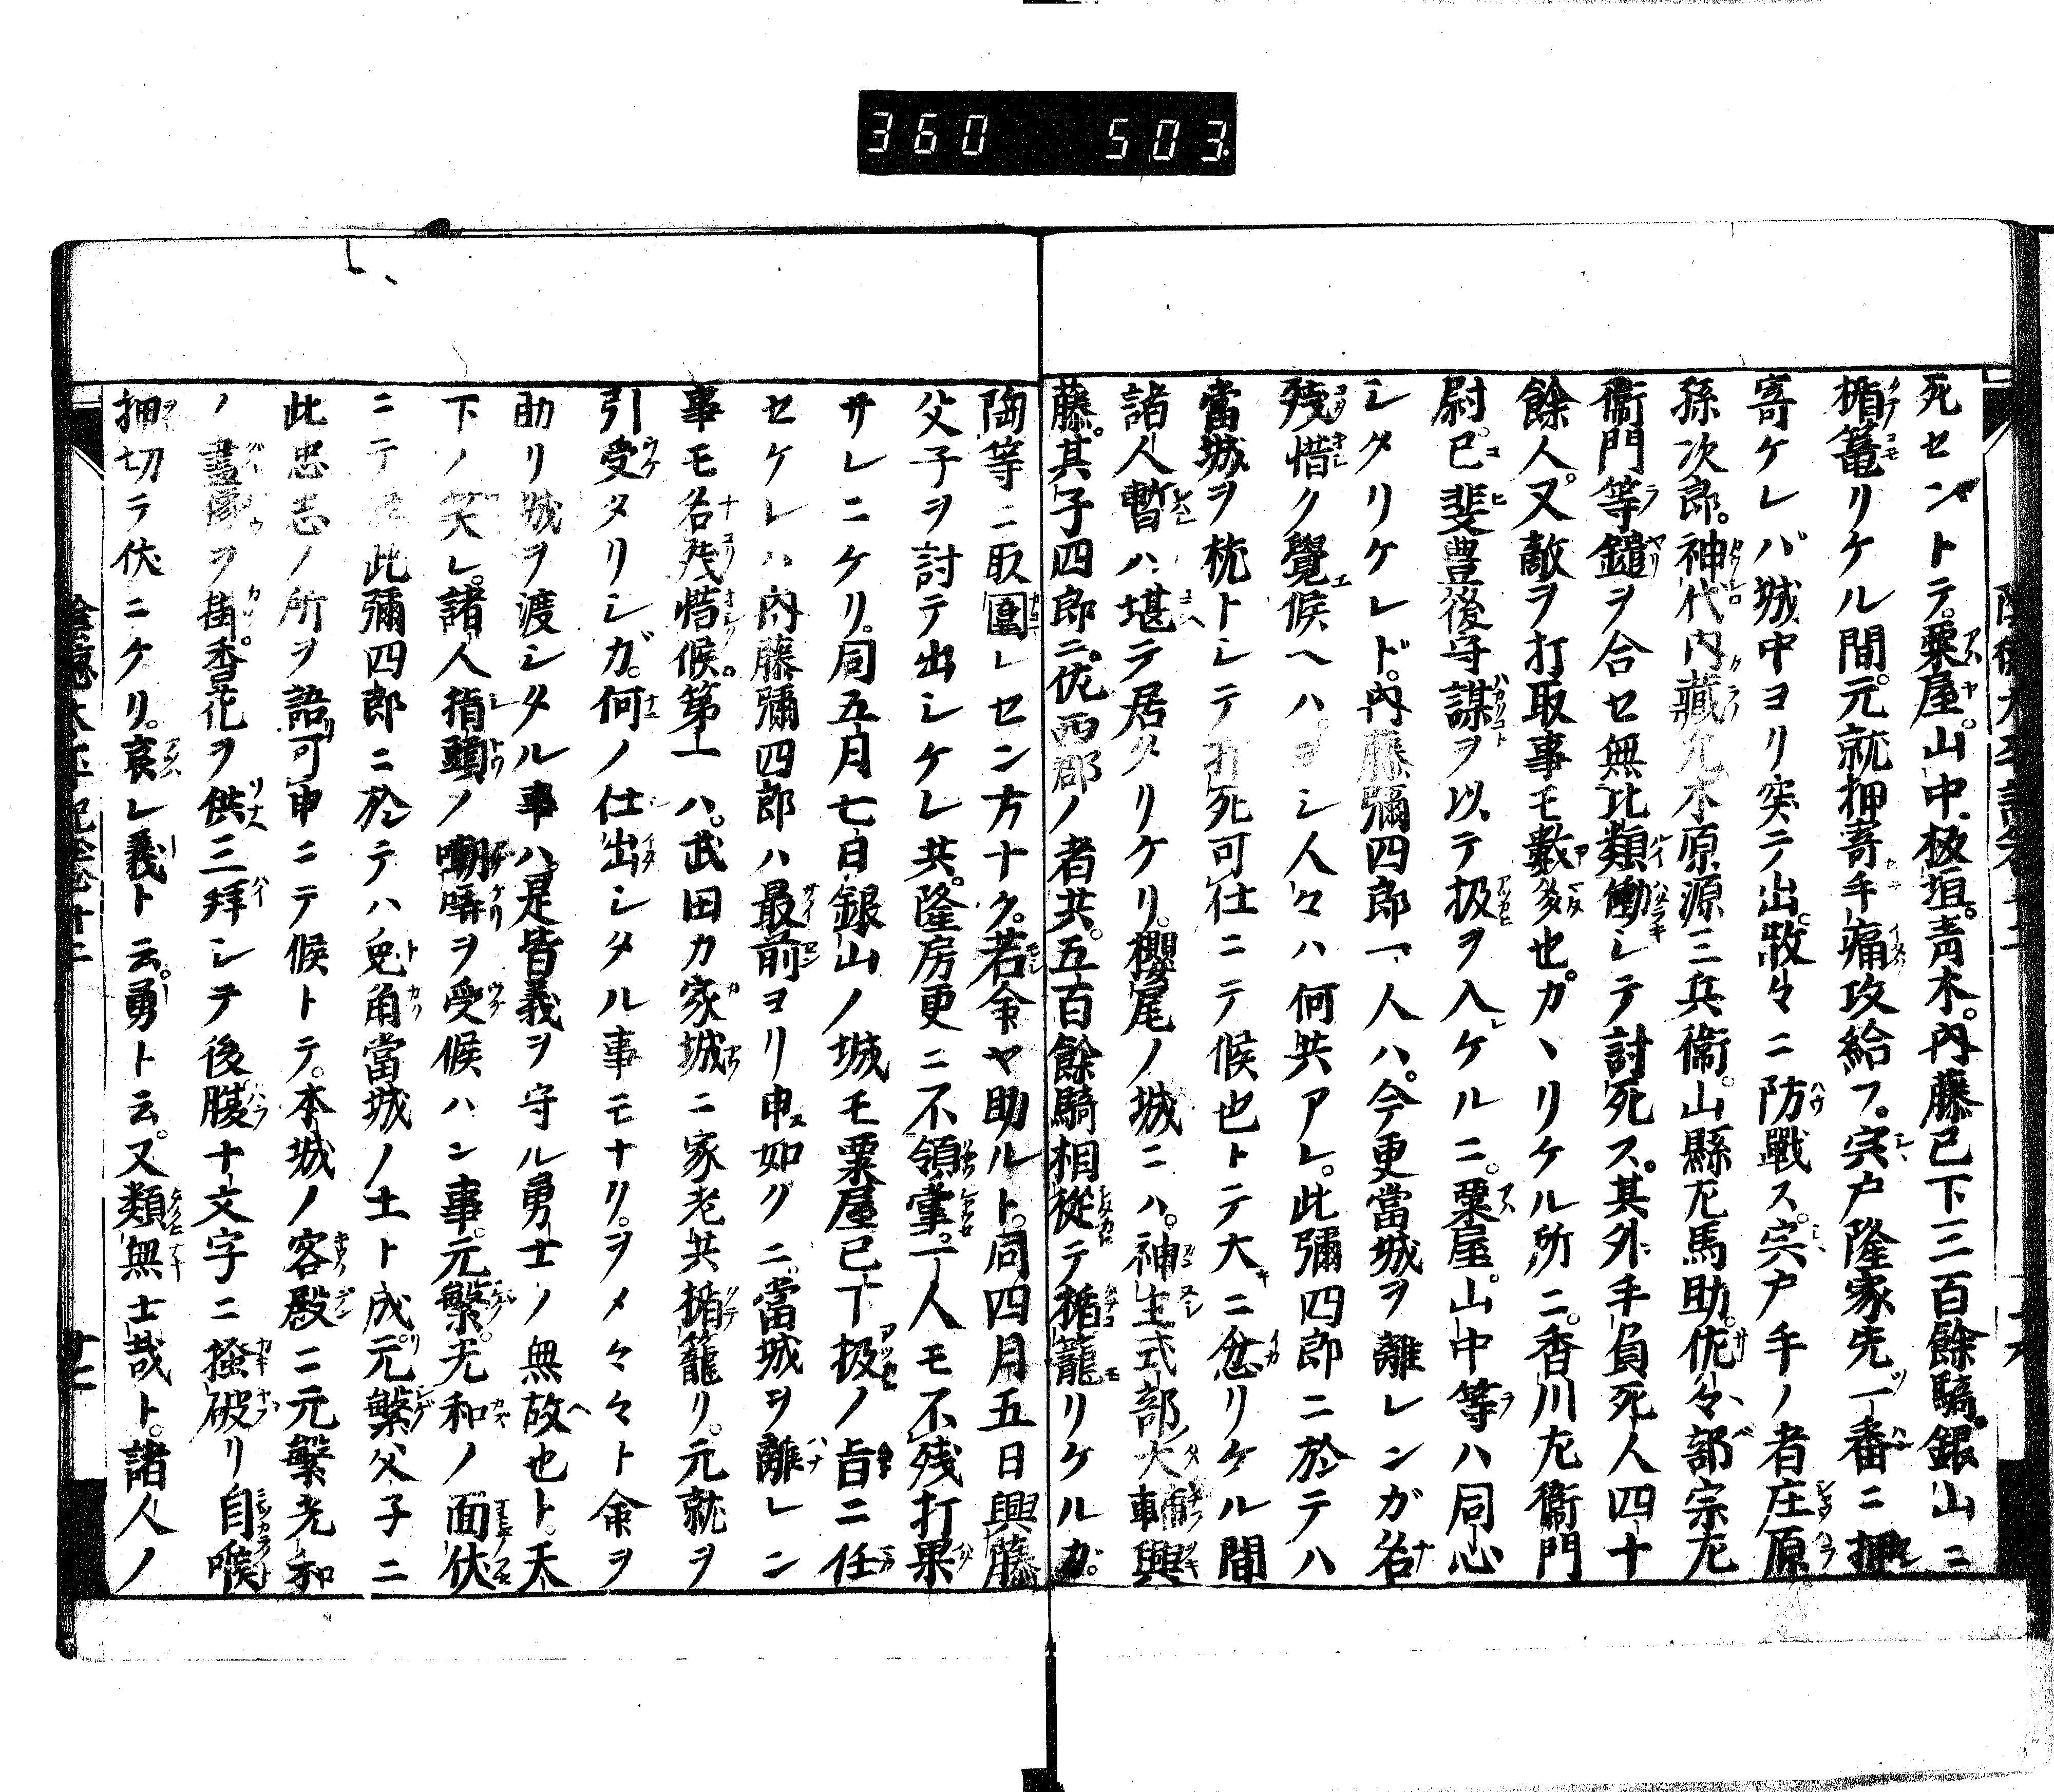 360 503
死セントテ。粟屋。山中。板垣。青木。内藤已下三百餘騎。銀山ニ
楯籠リケル間。元就押寄手痛攻給フ。宍戸隆家先一番ニ押
寄ケレバ城中ヨリ突テ出。散々ニ防戰ス。宍戸手ノ者庄原
孫次郎。神代内藏允木原源三兵衞。山縣左馬助。佐々部宗左
衞門等鑓ヲ合セ無比類働シテ討死ス。其外手負死人四十
餘人。又敵ヲ打取事モ數多也。カヽリケル所ニ。香川左衞門
尉。已斐豊後守謀ヲ以テ扱ヲ入ケルニ。粟屋。山中等ハ同心
シタリケレド。内藤彌四郎一人ハ。今更當城ヲ離レンガ名
殘惜ク覺候ヘハ。ヨシ人々ハ何共アレ。此彌四郎ニ於テハ
當城ヲ枕トシテ打死可仕ニテ候也トテ大ニ忿リケル間
諸人暫ハ堪テ居タリケリ。櫻尾ノ城ニハ。神主式部大輔興
藤。其子四郎ニ。佐西郡ノ者共。五百餘騎相從テ楯籠リケルガ。
陶等ニ取圍レセン方ナク。若命ヤ助ルト。同四月五日興藤
父子ヲ討テ出シケレ共。隆房更ニ不領掌。一人モ不残打果
サレニケリ。同五月七日銀山ノ城モ粟屋已下扱ノ旨ニ任
セケレハ内藤彌四郎ハ最前ヨリ申如クニ。當城ヲ離レン
事モ名残惜候。第一ハ。武田カ家城ニ家老共楯籠リ。元就ヲ
引受タリシガ。何ノ仕出シタル事モナリ。ヲメ々々ト命ヲ
助リ城ヲ渡シタル事ハ。是皆義ヲ守ル勇士ノ無故也ト。天
下ノ笑レ。諸人指頭ノ嘲哢ヲ受候ハン事。元繁。光和ノ面伏
ニテ 此彌四郎ニ於テハ兔角當城ノ土ト成。元繁父子ニ
此忠志ノ所ヲ語可申ニテ候トテ。本城ノ客殿ニ元繁光和
ノ畫像ヲ掛。香花ヲ供三拜シテ後腹十文字ニ掻破リ自喉
押切テ伏ニケリ。哀レ義ト云。勇ト云。又類無士哉ト。諸人ノ